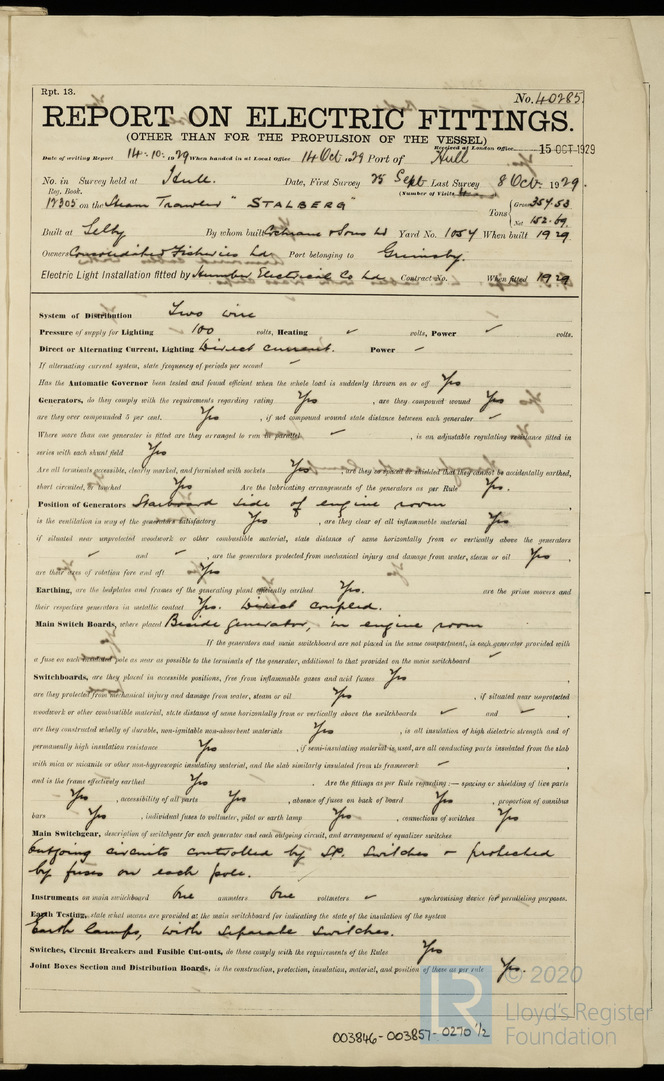 Rpt. 13.
No. 40285.
REPORT ON ELECTRIC FITTINGS.
(OTHER THAN FOR THE PROPULSION OF THE VESSEL)
Received at London Office 15 OCT 1929
Date of writing Report 14-10-1929 When handed in at Local Office 14 Oct. 29 Port of Hull
No. in Survey held at Hull. Date, First Survey 25 Sept Last Survey 8 Oct. 1929.
Reg. Book. (Number of Visits
17305 on the Steam Trawler "STALBERG" Tons { Gross 354.53 Net 152.69
Built at Selby By whom built Cochrane & Sons Ld Yard No. 1054 When built 1929
Owners Consolidated Fisheries Ld Port belonging to Grimsby.
Electric Light Installation fitted by Humber Electrical Co Ld. Contract No. When fitted 1929
System of Distribution Two wire
Pressure of supply for Lighting 100 volts, Heating ✓ volts, Power ✓ volts.
Direct or Alternating Current, Lighting Direct current. Power ✓
If alternating current system, state frequency of periods per second —
Has the Automatic Governor been tested and found efficient when the whole load is suddenly thrown on or off Yes
Generators, do they comply with the requirements regarding rating Yes , are they compound wound Yes
are they over compounded 5 per cent. Yes , if not compound wound state distance between each generator ✓
Where more than one generator is fitted are they arranged to run in parallel ✓ , is an adjustable regulating resistance fitted in
series with each shunt field Yes
Are all terminals accessible, clearly marked, and furnished with sockets Yes , are they so spaced or shielded that they cannot be accidentally earthed,
short circuited, or touched Yes Are the lubricating arrangements of the generators as per Rule Yes.
Position of Generators Starboard side of engine room
is the ventilation in way of the generators satisfactory Yes , are they clear of all inflammable material Yes
if situated near unprotected woodwork or other combustible material, state distance of same horizontally from or vertically above the generators
✓ and ✓ , are the generators protected from mechanical injury and damage from water, steam or oil Yes
are their axes of rotation fore and aft Yes
Earthing, are the bedplates and frames of the generating plant efficiently earthed Yes. are the prime movers and
their respective generators in metallic contact Yes. Direct coupled.
Main Switch Boards, where placed Beside generator, in engine room
If the generators and main switchboard are not placed in the same compartment, is each generator provided with
a fuse on each insulated pole as near as possible to the terminals of the generator, additional to that provided on the main switchboard ✓
Switchboards, are they placed in accessible positions, free from inflammable gases and acid fumes Yes ,
are they protected from mechanical injury and damage from water, steam or oil Yes , if situated near unprotected
woodwork or other combustible material, state distance of same horizontally from or vertically above the switchboards ✓ and ✓ ,
are they constructed wholly of durable, non-ignitable non-absorbent materials Yes , is all insulation of high dielectric strength and of
permanently high insulation resistance Yes , if semi-insulating material is used, are all conducting parts insulated from the slab
with mica or micanite or other non-hygroscopic insulating material, and the slab similarly insulated from its framework ✓ ,
and is the frame effectively earthed Yes . Are the fittings as per Rule regarding :— spacing or shielding of live parts
Yes , accessibility of all parts Yes , absence of fuses on back of board Yes , proportion of omnibus
bars Yes , individual fuses to voltmeter, pilot or earth lamp Yes , connections of switches Yes
Main Switchgear, description of switchgear for each generator and each outgoing circuit, and arrangement of equalizer switches
Outgoing circuits controlled by S.P. Switches & protected
by fuses on each pole.
Instruments on main switchboard One ammeters One voltmeters ✓ synchronising device for paralleling purposes.
Earth Testing, state what means are provided at the main switchboard for indicating the state of the insulation of the system
Earth lamps, with separate switches.
Switches, Circuit Breakers and Fusible Cut-outs, do these comply with the requirements of the Rules Yes
Joint Boxes Section and Distribution Boards, is the construction, protection, insulation, material, and position of these as per rule Yes.
© 2020
Lloyd's Register
Foundation
003846-003857-0270 1/2